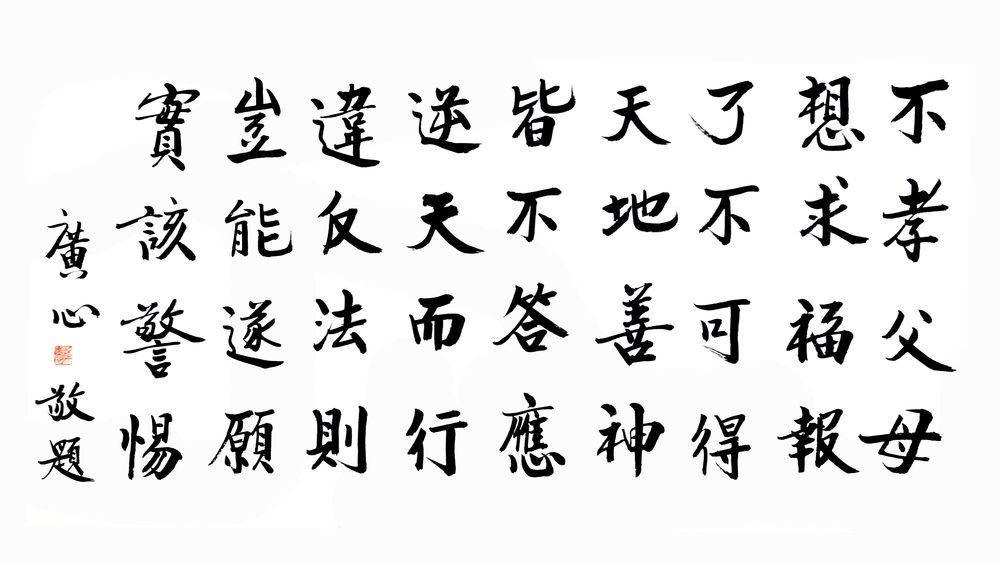 不孝父母
想求福報
了不可得
天地善神
皆不答應
逆天而行
違反法則
豈能遂願
實該警惕
廣心敬題